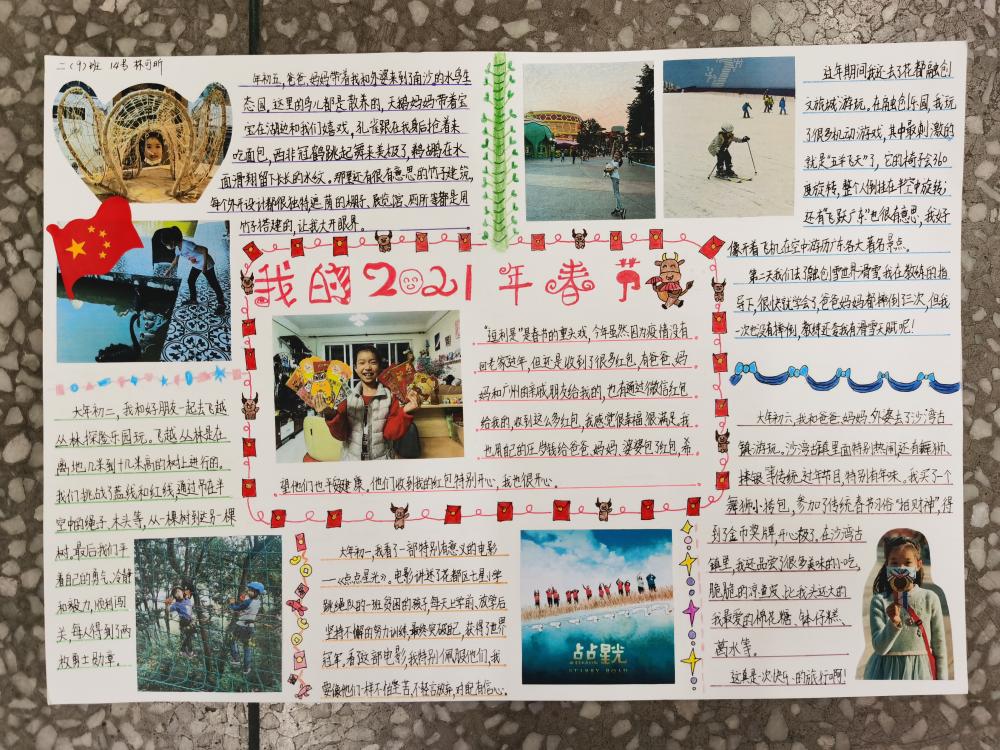 二(9)班 14号 林可昕
年初五,爸爸、妈妈带着我和外婆来到了南沙的水鸟生
态园,这里的鸟儿都是散养的,天鹅妈妈带着宝
宝在湖边和我们嬉戏,孔雀跟在我身后抢着来
吃面包,西非冠鹤跳起舞来美极了,鹈鹕在水
面滑翔留下长长的水纹。那里还有很有意思的竹子建筑,
每个外形设计都很独特,遮荫的棚子、展览馆、厕所等都是用
竹子搭建的,让我大开眼界。
这年期间我还去了花都融创
文旅城游玩。在融创乐园,我玩
了很多机动游戏,其中最刺激的
就是“五羊飞天”了,它的椅子会360
度旋转,整个人倒挂在半空中旋转;
还有“飞跃广东”也很有意思,我好
像开着飞机在空中游历广东各大著名景点。
第二天我们去了融创雪世界滑雪,我在教练的指
导下,很快就学会了,爸爸妈妈都摔倒了三次,但我
一次也没有摔倒,教练还夸我有滑雪天赋呢!
我的2021年春节
“逗利是”是春节的重头戏,今年虽然因为疫情没有
回老家过年,但还是收到了很多红包,有爸爸、妈
妈和广州的亲戚朋友给我的,也有通过微信红包
给我的,收到这么多红包,我感觉很幸福,很满足,我
也用自己的压岁钱给爸爸、妈妈、婆婆包张包,希
望他们也平安健康。他们收到我的红包特别开心,我也很开心。
大年初二,我和好朋友一起去飞越
丛林探险乐园玩。飞越丛林是在
离地几米到十几米高的树上进行的。
我们挑战了蓝线和红线,通过吊在半
空中的绳子、木头等,从一棵树到达另一棵
树。最后我们手
着自己的勇气、冷静
和毅力,顺利闯
关,每人得到了两
枚勇士勋章。
大年初一,我看了一部特别有意义的电影
——《点点星光》。电影讲述了花都区七星小学
跳绳队的一班贫困的孩子,每天上学前、放学后
坚持不懈的努力训练,最终突破自己,获得了世界
冠军。看这部电影,我特别佩服他们,我
要像他们一样不怕辛苦,不轻言放弃,对自己有信心。
点点星光
STARRY ROAD
大年初六,我和爸爸、妈妈、外婆去了沙湾古
镇游玩。沙湾古镇里面特别热闹,还有舞狮、
抹银等传统过年节目,特别有年味。我买了个
舞狮小挎包,参加了传统春节习俗“拍财神”,得
到了金币奖牌,开心极了。在沙湾古
镇里,我还品尝了很多美味的小吃,
脆脆的凉鱼皮、比我头还大的
我最爱的棉花糖、钵仔糕、
蔗水等。
这真是一次快乐的旅行啊!